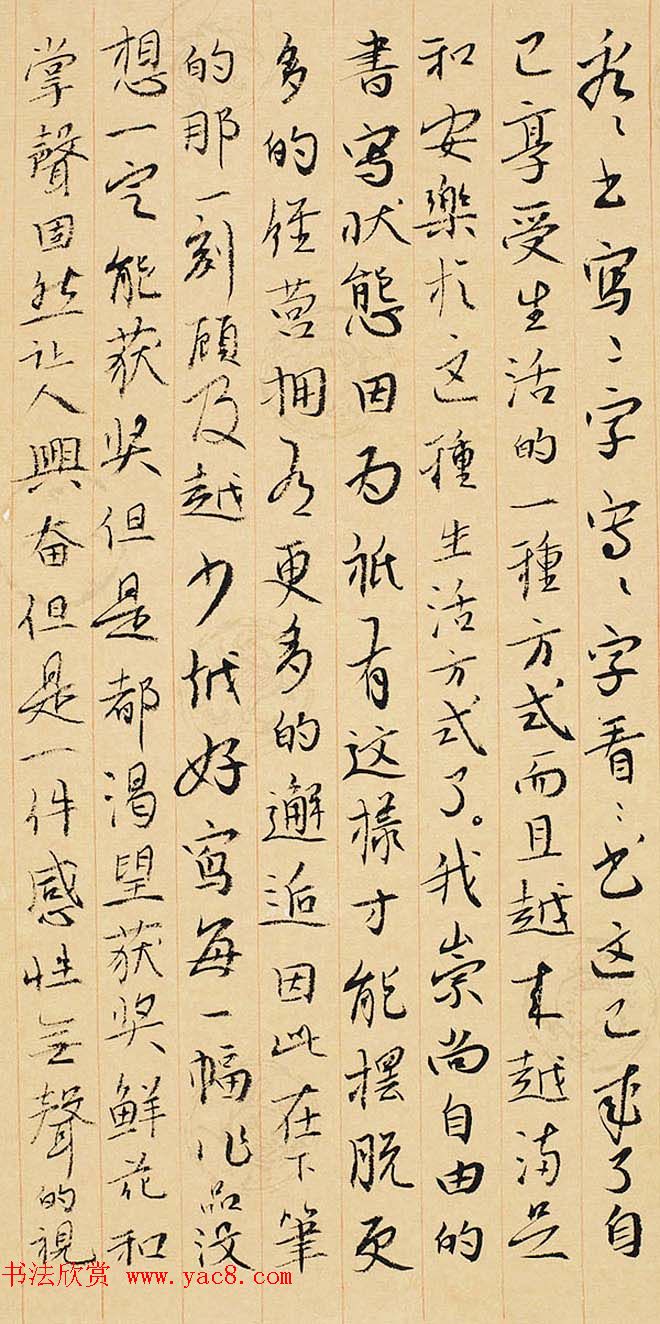 看看书寫寫字寫寫字看看书这已成了自
己享受生活的一種方式而且越来越满足
和安樂於这種生活方式了。我崇尚自由的
書寫状態因为祇有这樣才能摆脱更
多的经营拥有更多的邂逅因此在下筆
的那一刻顾及越少越好寫每一幅作品没
想一定能获奖但是都渴望获奖鲜花和
掌聲固然让人興奋但是一件感性無聲的視
书法欣赏 www.yac8.com